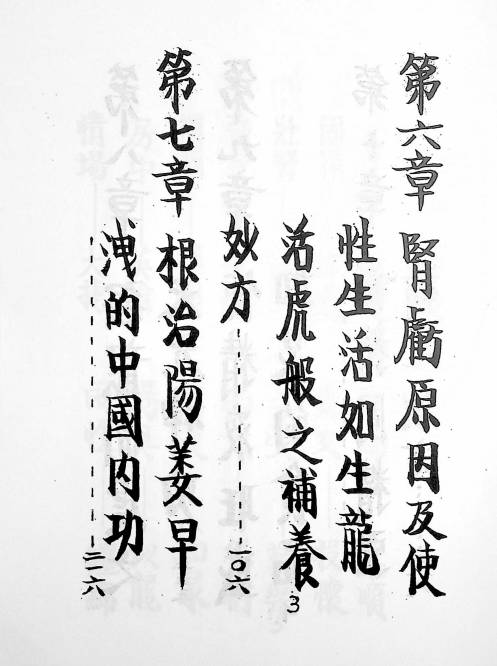 第六章 腎虧原因及使
性生活如生龍
活虎般之補養
妙方 一〇六
第七章 根治陽萎早
洩的中國內功 二一六
3